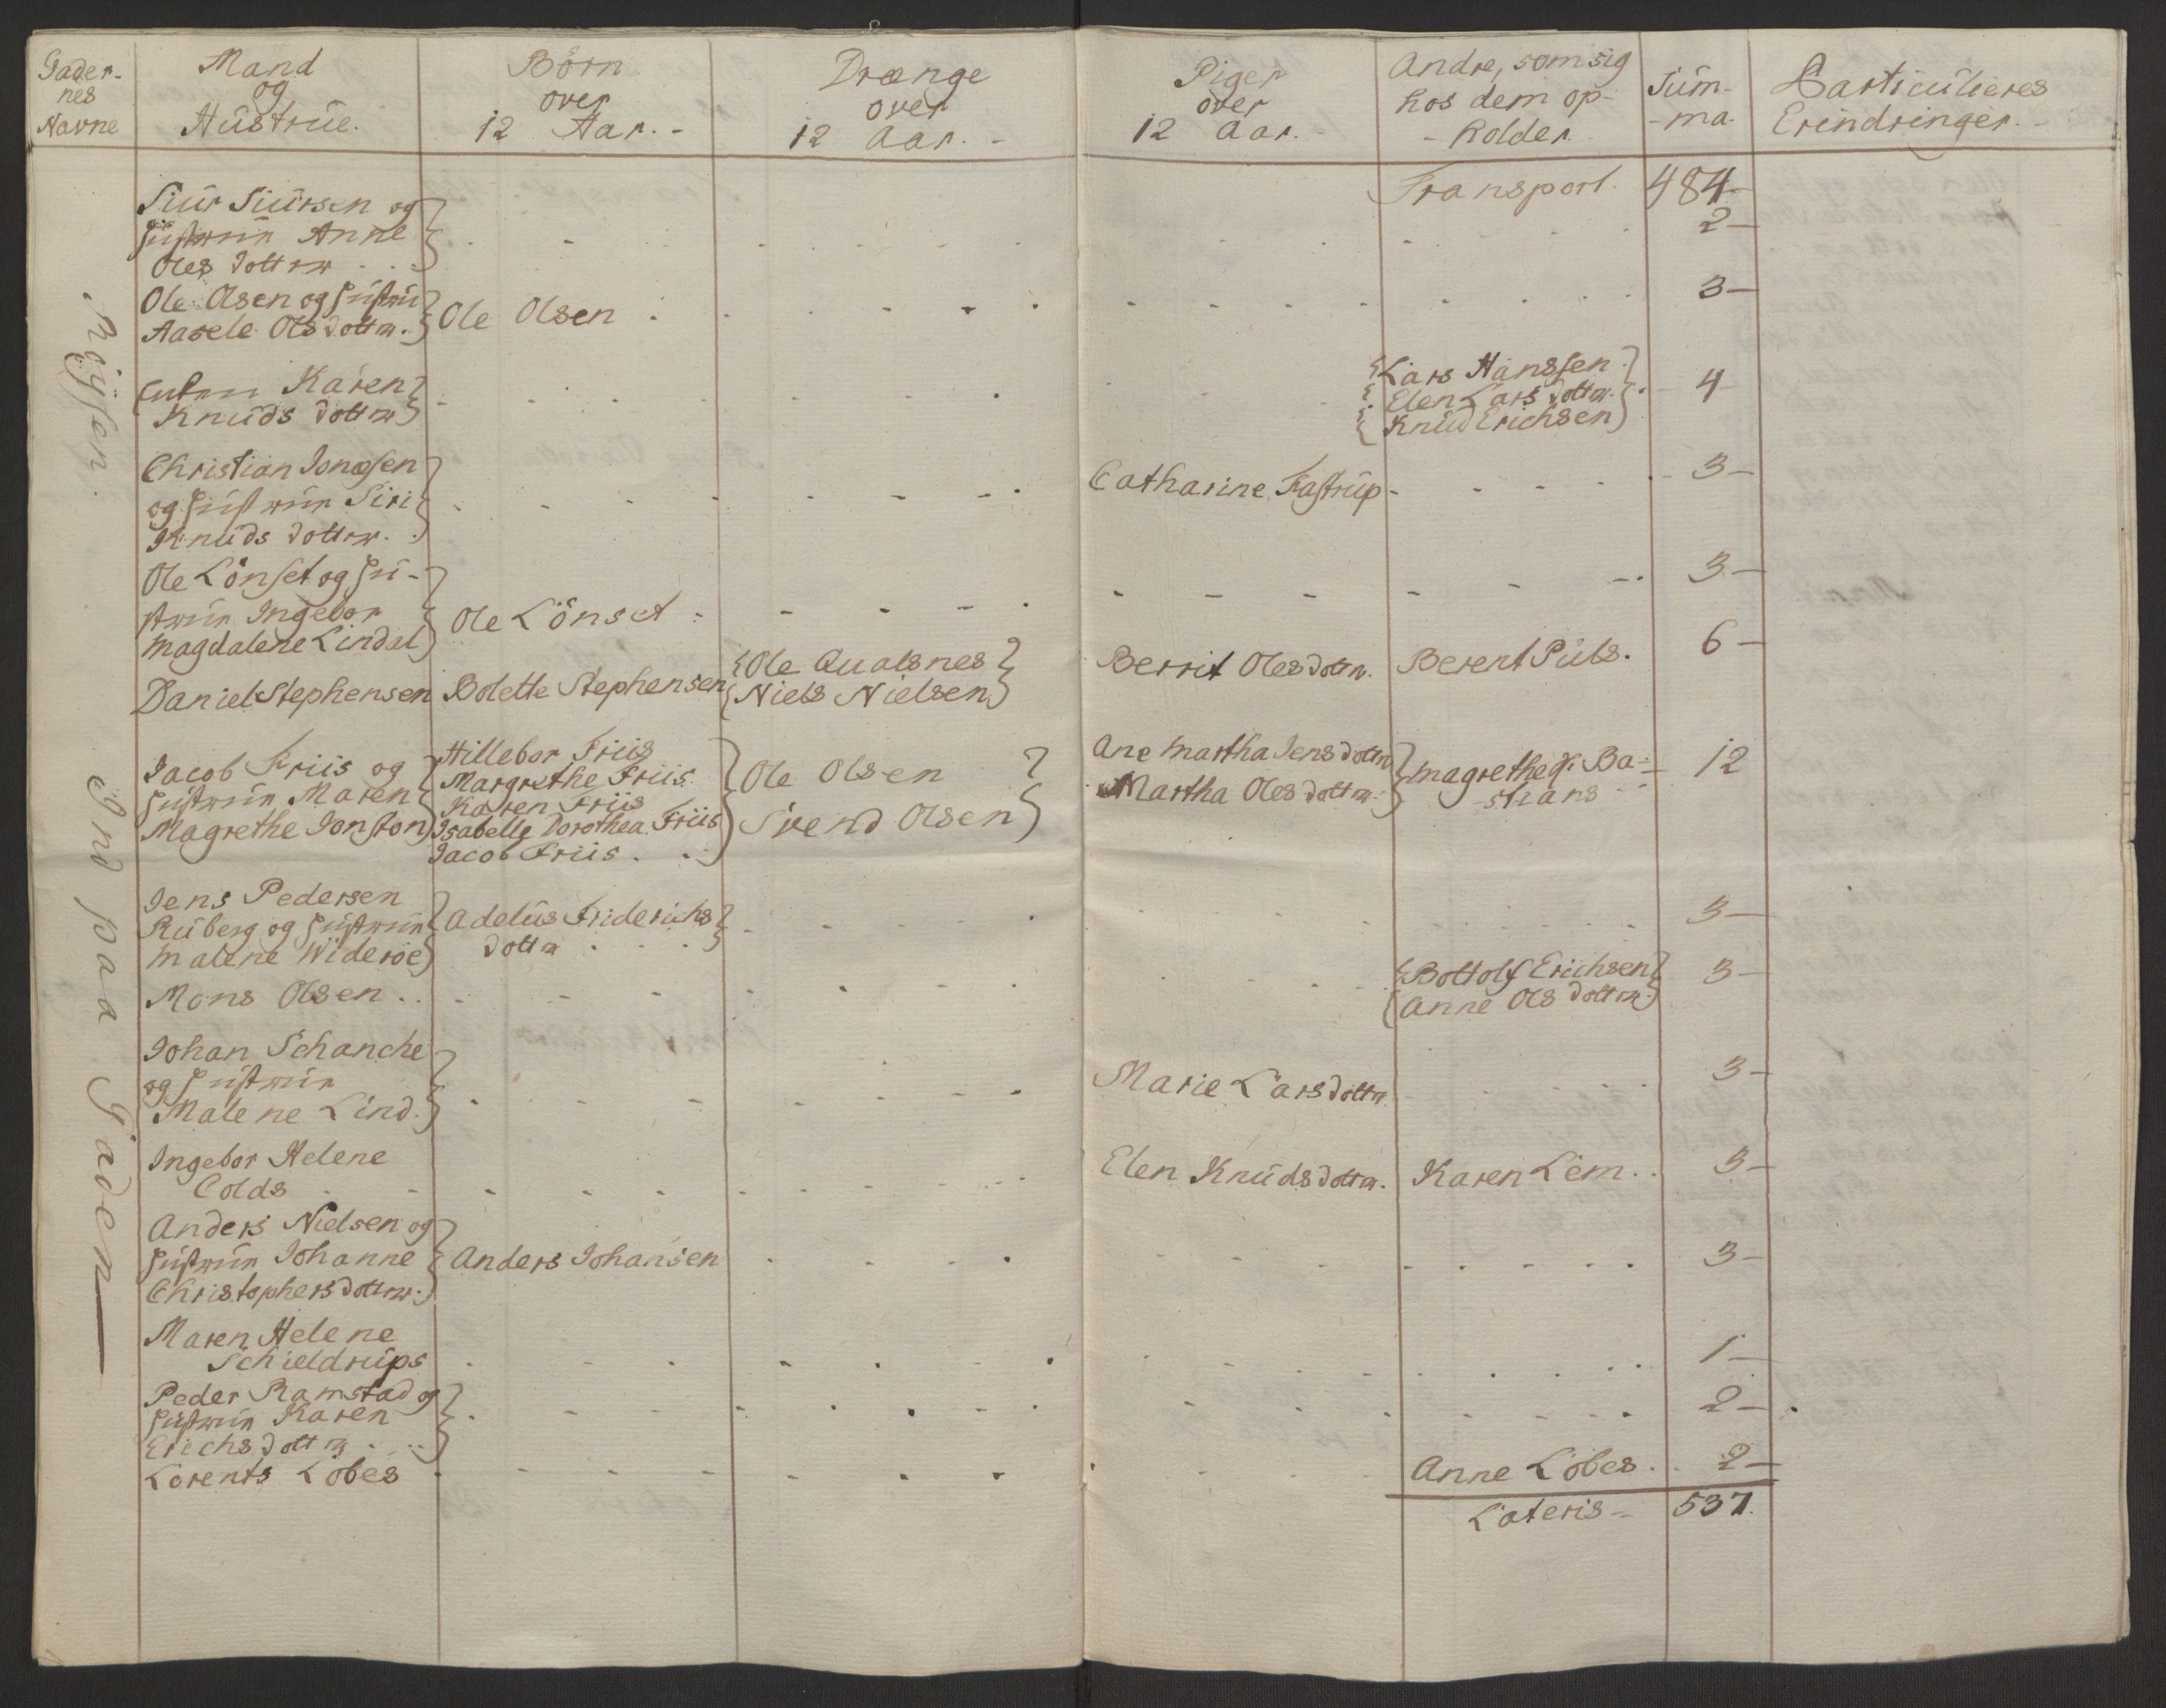 Gader-
nes
Navne
Mand
og
Hustrue.
Börn
over
12 Aar.-
Drænge
over
12 Aar.-
Piger
over
12 Aar.
Andre, som sig
hos dem op-
-holder.
Sum-
-ma.
Particulieres
Erindringer.-
Röysen.
Ind paa Gaden
Transport. 484-
Siur Siursen og
Hustruin Anne
Oles dotter
2-
Ole Olsen og Hustru
Aasele Olsdotter.
Ole Olsen
3-
Enken Karen
Knuds dotter
Lars Hanssen
Elen Lars dotter
Knud Erichsen
4
Christian Jonassen
og Hustruin Siri
Knuds dotter.
Catharine Fastrup
3-
Ole Lönset og Hu-
struin Ingebor
Magdalene Lindal
Ole Lönset
3-
Daniel Stephensen
Bolette Stephensen
Ole Qualsnes
Niels Nielsen
Berrit Olesdotter.
Berent Puls.
6-
Jacob Friis og
Hustruin Maren
Magrethe Jonston
Hillebor Friis
Margrethe Friis
Karen Friis
Isabelle Dorothea Friis
Jacob Friis
Ole Olsen
Svend Olsen
Ane Martha Jensdotter
Martha Olesdotter
Magrethe Ba-
-stians
12
Jens Pedersen
Ruberg og Hustruin
Malene Wideröe
Adelus Friderichs
dotter
3-
Mons Olsen
Bottolf Erichsen
Anne Ols dotter
3-
Johan Schanche
og Hustruin
Malene Lind.
Marie Larsdotter
3-
Ingebor Helene
Colds
Elen Knudsdotter.
Karen Lem
3-
Anders Nielsen og
Hustruin Johanne
Christophersdotter
Anders Johansen
3-
Maren Helene
Schieldrups
1-
Peder Ramstad og
Hustruin Karen
Erichsdotter
2-
Lorents Löbes
Anne Löbes
2-
Lateris- 537.